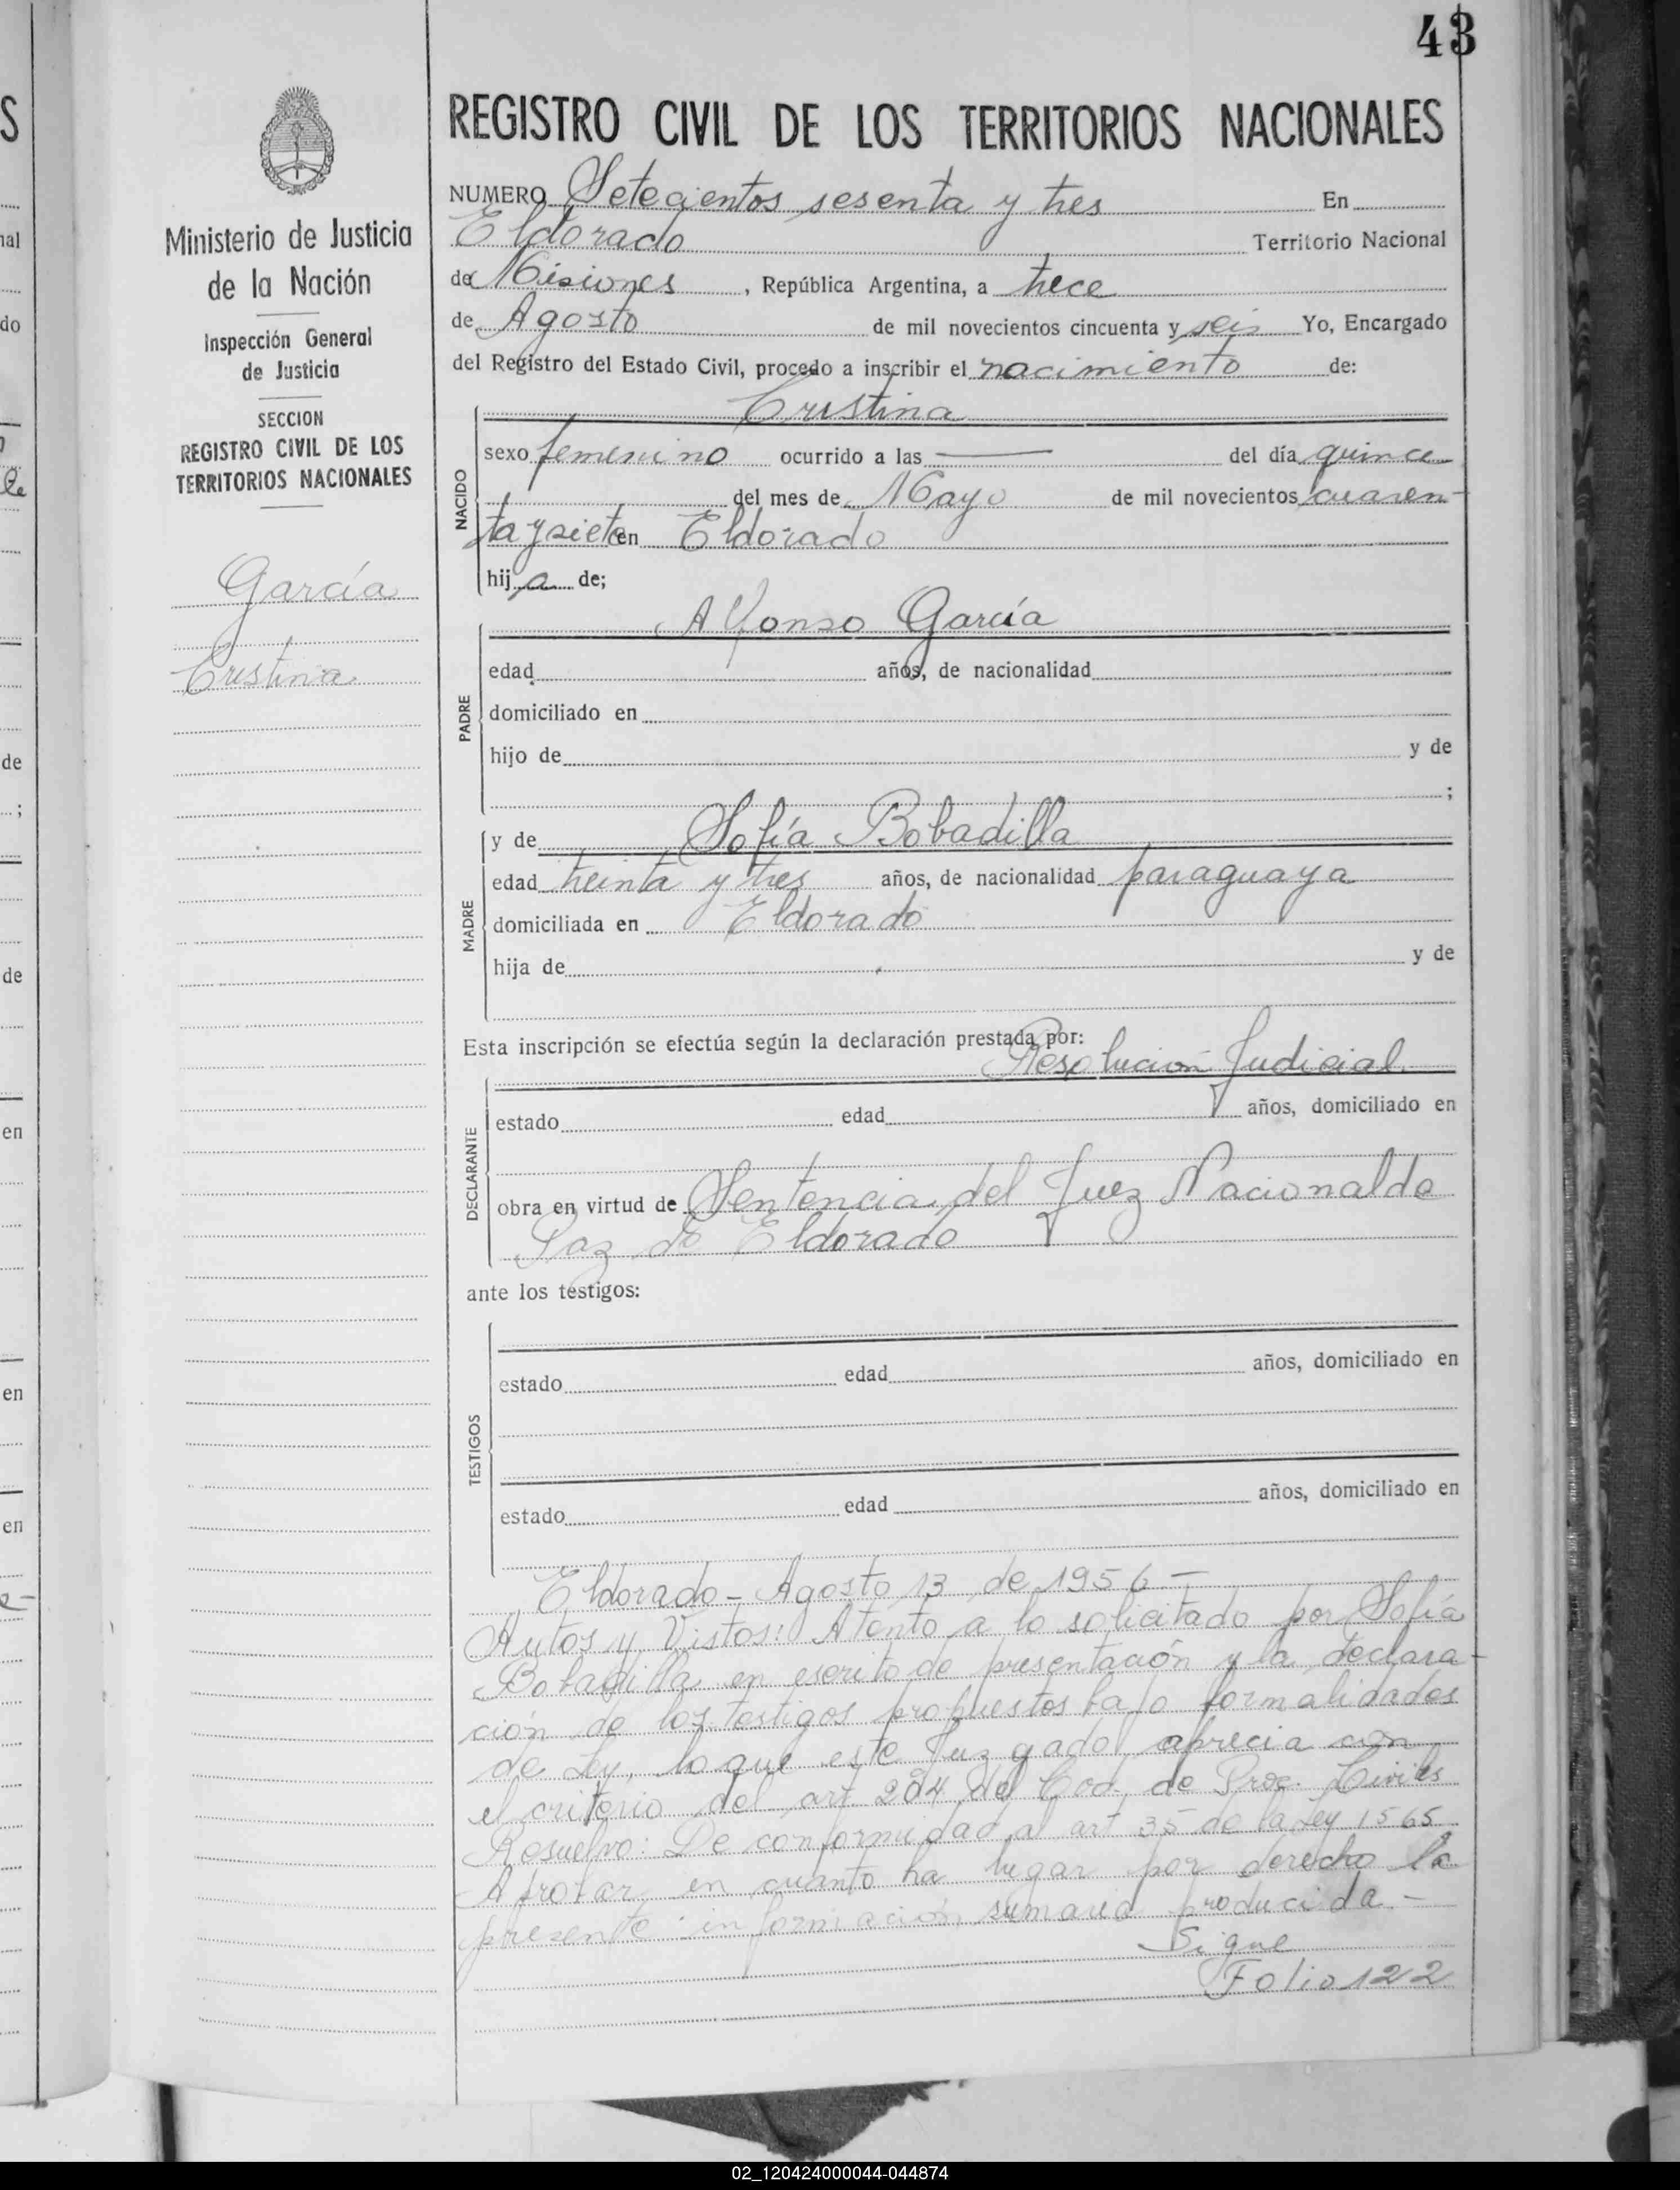 43
REGISTRO CIVIL DE LOS TERRITORIOS NACIONALES
Ministerio de Justicia
de la Nación
Inspección General
de Justicia
SECCION
REGISTRO CIVIL DE LOS
TERRITORIOS NACIONALES
García
Cristina
NUMERO Setecientos sesenta y tres En
Eldorado Territorio Nacional
de Misiones, República Argentina, a trece
de Agosto de mil novecientos cincuenta y seis Yo, Encargado
del Registro del Estado Civil, procedo a inscribir el nacimiento de:
NACIDO
Cristina
sexo femenino ocurrido a las — del día quince
del mes de Mayo de mil novecientos cuaren-
ta y siete en Eldorado
hija de;
PADRE
Alfonso García
edad años, de nacionalidad
domiciliado en
hijo de y de
;
MADRE
y de Sofía Bobadilla
edad treinta y tres años, de nacionalidad paraguaya
domiciliada en Eldorado
hija de y de
Esta inscripción se efectúa según la declaración prestada por:
DECLARANTE
Resolución Judicial
estado edad años, domiciliado en
obra en virtud de Sentencia del Juez Nacional de
Paz de Eldorado
ante los testigos:
TESTIGOS
estado edad años, domiciliado en
estado edad años, domiciliado en
Eldorado - Agosto 13 de 1956 -
Autos y Vistos: Atento a lo solicitado por Sofía
Bobadilla en escrito de presentación y la declara-
ción de los testigos propuestos bajo formalidades
de Ley, lo que este Juzgado aprecia con
el criterio del art. 204 del Cod. de Proc. Civiles
Resuelvo: De conformidad al art 35 de la Ley 1565
Aprobar en cuanto ha lugar por derecho la
presente información sumaria producida. -
Sigue
Folio 122
de
;
de
en
en
en
02_120424000044-044874